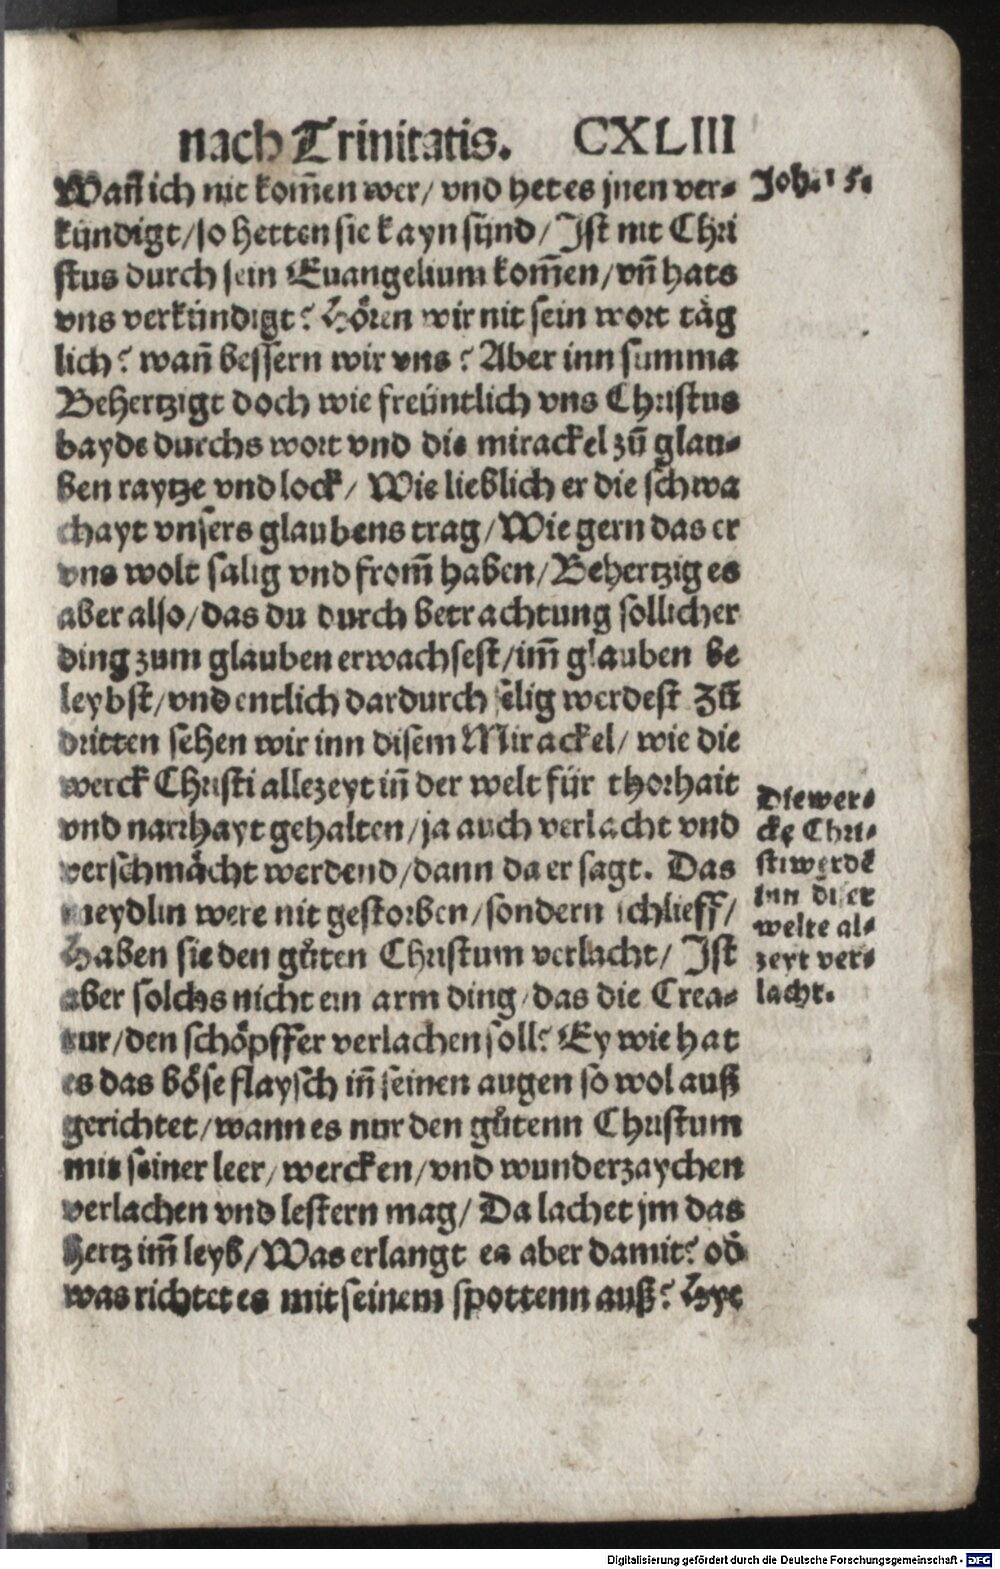 nach Trinitatis. CXLIII
Wañ ich nit kom̃en wer/ vnd het es jnen ver⸗
Joh. 15.
kündigt/ so hetten sie kayn sünd/ Ist nit Chri
stus durch sein Euangelium kom̃en/ vñ hats
vns verkündigt? Hören wir nit sein wort täg
lich? wañ bessern wir vns? Aber inn summa
Behertzigt doch wie freüntlich vns Christus
bayde durchs wort vnd die mirackel zů glau⸗
ben raytze vnd lock/ Wie lieblich er die schwa
chayt vnsers glaubens trag/ Wie gern das er
vns wolt salig vnd from̃ haben/ Behertzig es
aber also/ das du durch betrachtung sollicher
ding zum glauben erwachsest/ im̃ glauben be
leybst/ vnd entlich dardurch sēlig werdest Zů
dritten sehen wir inn disem Mirackel/ wie die
werck Christi allezeyt iñ der welt für thorhait
vnd narrhayt gehalten/ ja auch verlacht vnd
verschmächt werdend/ dann da er sagt. Das
meydlin were nit gestorben/ sondern schlieff/
Haben sie den gůten Christum verlacht/ Ist
aber solchs nicht ein arm ding/ das die Crea⸗
tur/ den schöpffer verlachen soll? Ey wie hat
es das böse flaysch iñ seinen augen so wol auß
gerichtet/ wann es nur den gůtenn Christum
mit seiner leer/ wercken/ vnd wunderzaychen
verlachen vnd lestern mag/ Da lachet jm das
hertz im̃ leyb/ Was erlangt es aber damit? od̕
was richtet es mit seinem spottenn auß? Hye
Die wer⸗
cke Chri⸗
sti werdē
inn diser
welte al⸗
zeyt ver⸗
lacht.
Digitalisierung gefördert durch die Deutsche Forschungsgemeinschaft - DFG